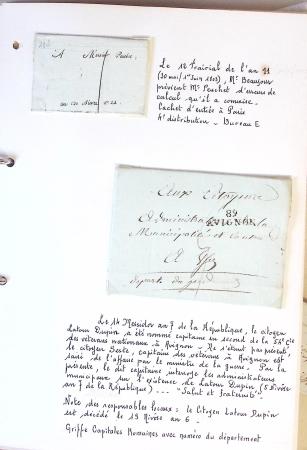 A
Le 12 Prairial de l'an 11
(30 mai/1er Juin 1803), Mr Beaujour
prévient Mr Pouchet d'erreurs de
calcul qu'il a commise.
Cachet d'entrée à Paris
4e distribution - Bureau E
Aux Citoyens
Administrateurs de la
89
AVIGNON
Municipalité et Canton
A
département du gard
Le 14 Messidor an 7 de la République, le citoyen
Latour Dupin, a été nommé capitaine en second de la 54e Cie
des vétérans nationaux à Avignon - Ne s'étant pas présenté,
le citoyen Seste, capitaine des vétérans à Avignon est
saisi de l'affaire par le ministre de la guerre. Par la
présente, le dit capitaine interroge les administrateurs
municipaux sur l'existence de Latour Dupin (5 Nivôse
an 7 de la République) ... "Salut et Fraternité"
Note des responsables locaux : le Citoyen Latour Dupin
est décédé le 19 Nivôse an 6 -
Griffe Capitales Romaines avec numéro du département